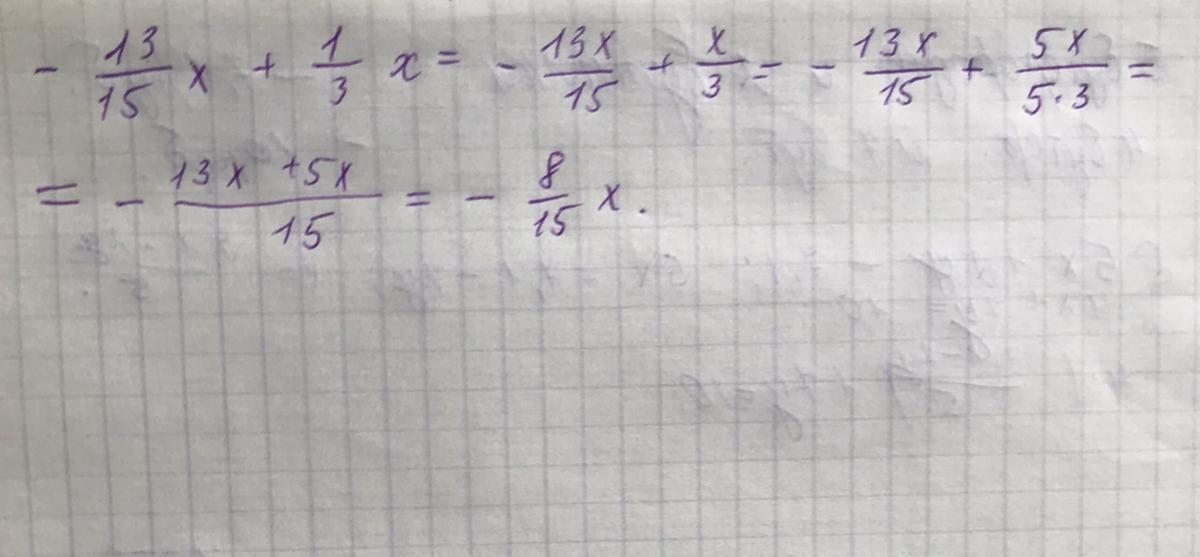 - 13/15 x + 1/3 x = - 13x/15 + x/3 = - 13x/15 + 5x/5·3 =
= - 13x +5x/15 = - 8/15 x.